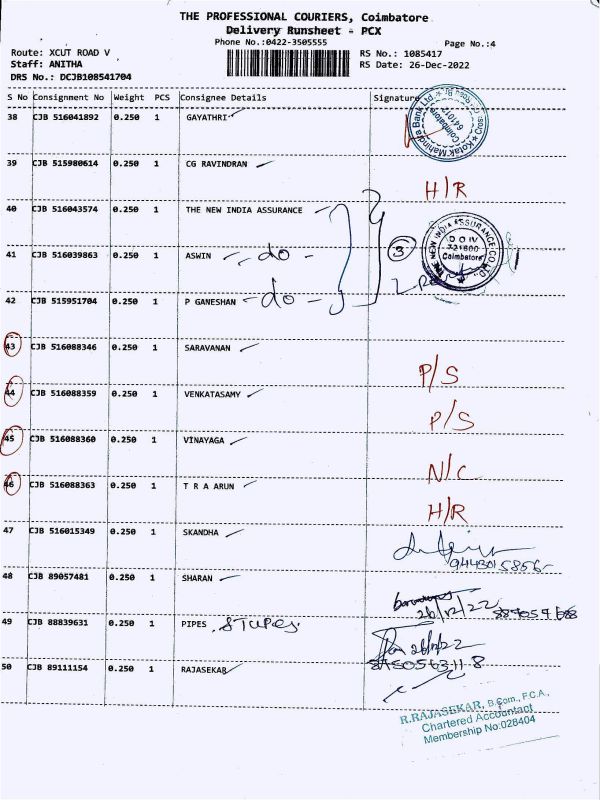 THE PROFESSIONAL COURIERS, Coimbatore
Delivery Runsheet - PCX
Phone No.:0422-3505555
Page No.:4
Route: XCUT ROAD V
RS No.: 1085417
Staff: ANITHA
RS Date: 26-Dec-2022
DRS No.: DCJB108541704
S No Consignment No Weight PCS Consignee Details Signature
38 CJB 516041892 0.250 1 GAYATHRI
Kotak Mahindra Bank Ltd.
Coimbatore
641012
39 CJB 515980614 0.250 1 CG RAVINDRAN
H/R
40 CJB 516043574 0.250 1 THE NEW INDIA ASSURANCE
THE NEW INDIA ASSURANCE CO. LTD.
D O IV
721600
Coimbatore
3
41 CJB 516039863 0.250 1 ASWIN - do -
42 CJB 515951704 0.250 1 P GANESHAN - do -
43 CJB 516088346 0.250 1 SARAVANAN
P/S
44 CJB 516088359 0.250 1 VENKATASAMY
P/S
45 CJB 516088360 0.250 1 VINAYAGA
N/C
46 CJB 516088363 0.250 1 T R A ARUN
H/R
47 CJB 516015349 0.250 1 SKANDHA
9443015856
48 CJB 89057481 0.250 1 SHARAN
26/12/22
49 CJB 88839631 0.250 1 PIPES & TUPES.
26/12/22
50 CJB 89111154 0.250 1 RAJASEKAR
R.RAJASEKAR, B.Com., F.C.A.,
Chartered Accountact
Membership No:028404